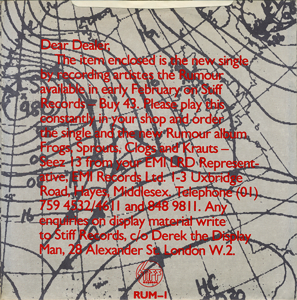 Dear Dealer,
The item enclosed is the new single
by recording artistes the Rumour
available in early February on Stiff
Records – Buy 43. Please play this
constantly in your shop and order
the single and the new Rumour album.
Frogs, Sprouts, Clogs and Krauts –
Seez 13 from your EMI LRD Represent-
ative, EMI Records Ltd. 1-3 Uxbridge
Road, Hayes, Middlesex, Telephone (01)
759 4532/4611 and 848 9811. Any
enquiries on display material write
to Stiff Records, c/o Derek the Display
Man, 28 Alexander St. London W.2.
HC
RUM–1